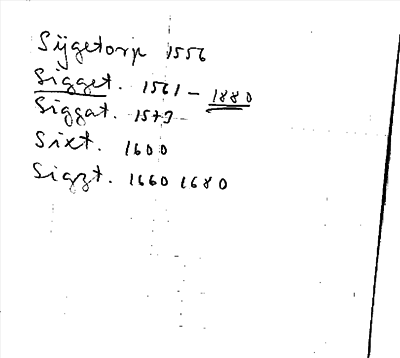 Sijgetorp 1556
Sigget. 1561 - 1880
Siggat. 1579
Sixt. 1600
Sigzt. 1660 1680